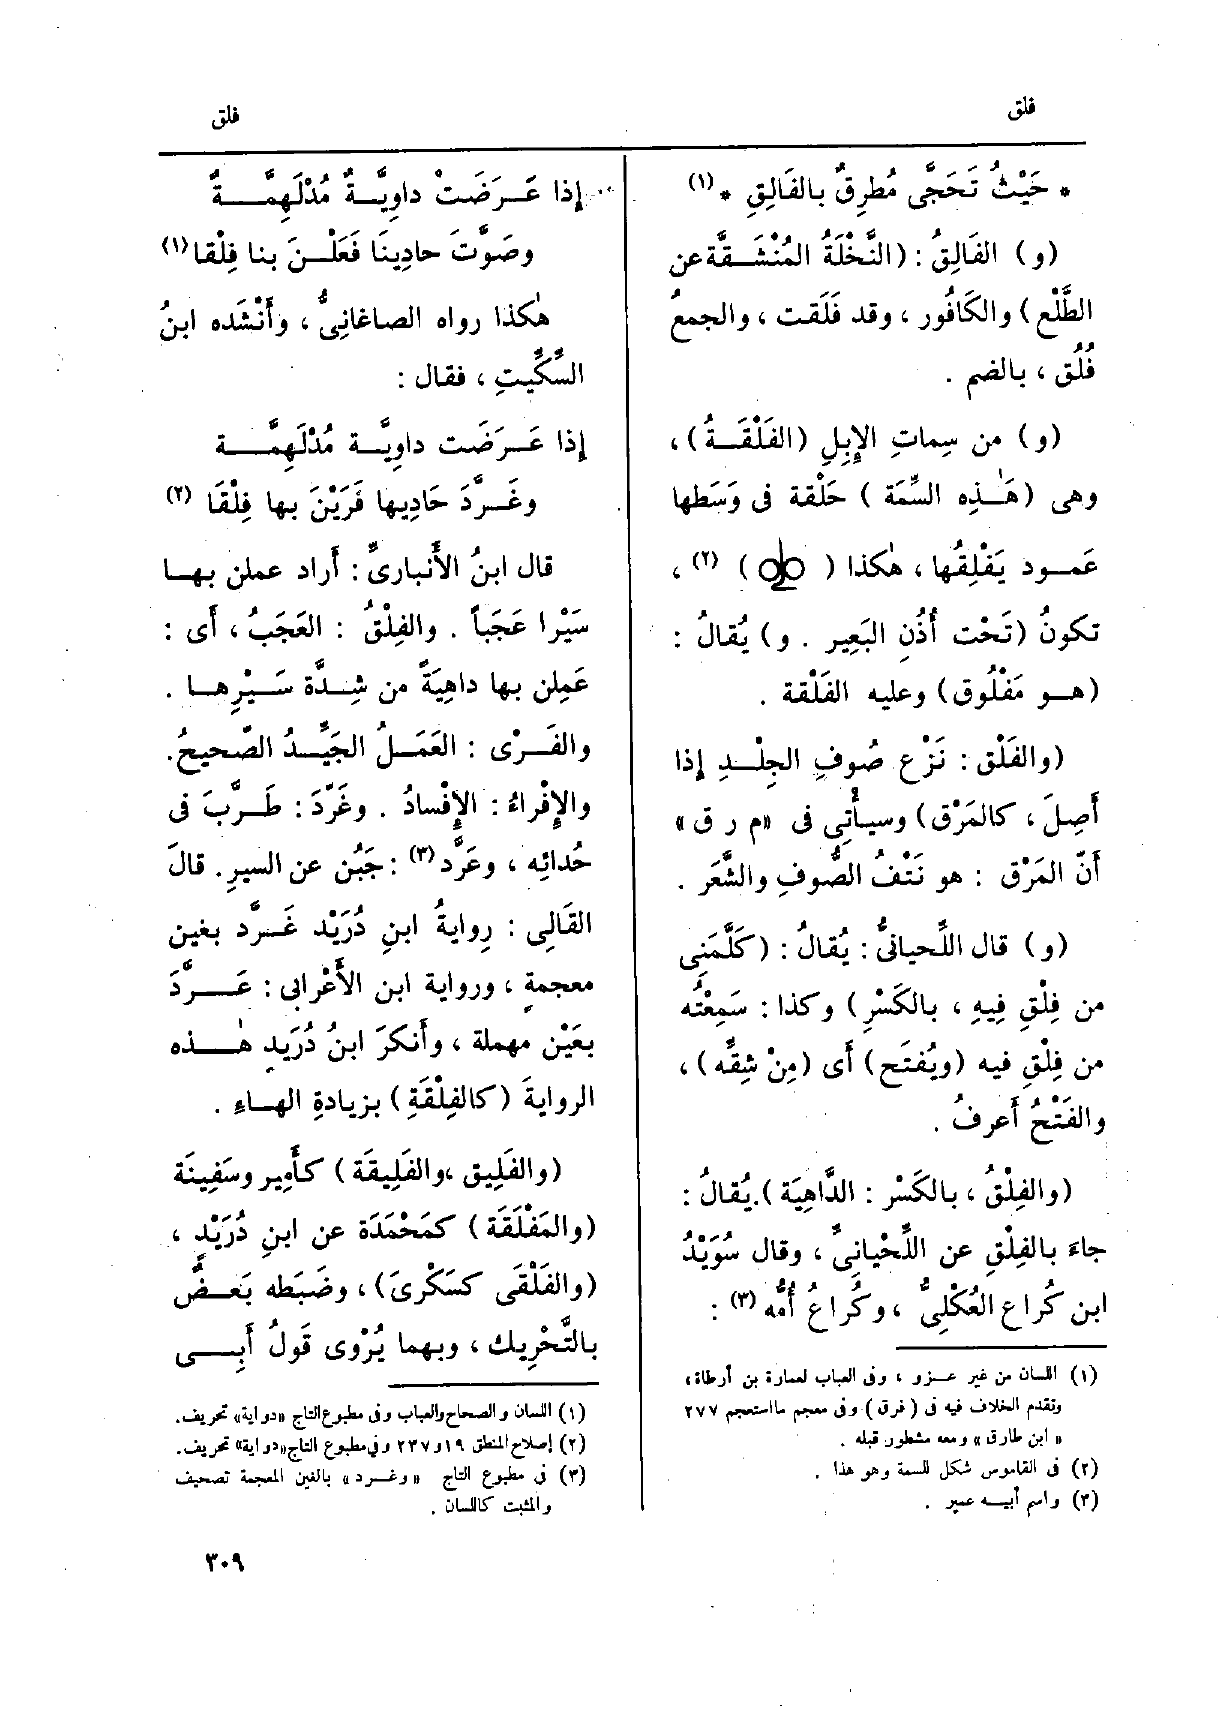 فلق
* حَيْثُ تَحَجَّى مُطرِقٌ بالفَالِقِ * (١)
(و) الفَالِقُ : (النَّخْلَةُ المُنْشَـقَّة عن
الطَّلْع) والكَافُور ، وقد فَلَقت ، والجمعُ
فُلُق ، بالضم .
(و) من سِماتِ الإبِلِ (الفَلْقَـةُ) ،
وهى (هَـٰذِه السِّمَة ) حَلْقة فى وَسَطها
عَمـود يَفْلِقُها ، هٰكذا ( ) (٢) ،
تكونُ (تَحْت أُذُنِ البَعِير . و) يُقالُ :
(هـو مَفْلُوق) وعليه الفَلْقة .
(والفَلْق : نَزْع صُوفِ الجِلْـدِ إذا
أَصِلَ ، كالمَرْق) وسيـأْتِى فى «م ر ق»
أَنّ المَرْق : هو نَتْفُ الصُّوفِ والشَّعَر .
(و) قال اللِّحيانىُّ : يُقالُ : (كَلَّمَنِى
من فِلْقِ فِيهِ ، بالكَسْرِ) وكذا : سَمِعْتُه
من فِلْقِ فيه (ويُفتَح) أَى (مِنْ شِقِّه) ،
والفَتْحُ أَعرفُ .
(والفِلْقُ ، بالكَسْر : الدَّاهِيَة). يُقالُ :
جاءَ بالفِلْقِ عن اللِّحْيانىِّ ، وقال سُوَيْدُ
ابن كُراع العُكْلِىُّ ، وكُراعُ أُمُّه (٣) :
(١) اللسان من غير عـزو ، وفى العباب لعمارة بن أرطاة ،
وتقدم الخلاف فيه فى ( فرق ) وفى معجم ما استعجم ٢٧٧
« ابن طارق » ومعه مشطور قبله .
(٢) فى القاموس شكل للسمة وهو هذا .
(٣) واسم أبيـه عمير .
فلق
إذا عَـرَضَتْ داوِيَّـةٌ مُدْلَهِمَّـةٌ
وصَوَّتَ حادِينَا فَعَلْـنَ بنا فِلْقا (١)
هٰكذا رواه الصاغانِىُّ ، وأَنْشَده ابنُ
السِّكِّيتِ ، فقال :
إذا عَـرَضَت داوِيَّـة مُدْلَهِمَّـة
وغَـرَّدَ حَادِيها فَرَيْنَ بها فِلْقَا (٢)
قال ابنُ الأَنبارىِّ : أَراد عملن بهـا
سَيْرا عَجَباً . والفِلْقُ : العَجَبُ ، أَى :
عَمِلن بها داهِيَةً من شِـدَّة سَـيْرِهـا .
والفَـرْى : العَمَـلُ الجَيِّـدُ الصّحيحُ.
والإِفْراءُ : الإِفْسادُ . وغَرَّدَ : طَـرَّبَ فى
حُدائِه ، وعَرَّد (٣) : جَبُن عن السيرِ . قالَ
القَالِى : رِوايةُ ابنِ دُرَيْد غَـرَّد بغين
معجمةٍ ، ورواية ابن الأَعْرابى : عَـرَّدَ
بعَيْن مهملة ، وأَنكرَ ابنُ دُرَيدٍ هٰـذه
الروايةَ (كالفِلْقَةِ) بزيادةِ الهـاءِ .
(والفَلِيق ، والفَلِيقَة) كأَمِير وسَفِينَة
(والمَفْلَقَة) كمَحْمَدَة عن ابنِ دُرَيْدٍ ،
(والفَلْقَى كسَكْرىَ) ، وضَبَطه بَعـضٌ
بالتَّحْرِيك ، وبهما يُرْوى قَولُ أَبِـى
(١) اللسان والصحاح والعباب وفى مطبوع التاج «دواية» تحريف.
(٢) إصلاح المنطق ١٩ و ٢٣٧ وفي مطبوع التاج «دواية» تحريف.
(٣) فى مطبوع التاج « وغـرد » بالغين المعجمة تصحيف
والمثبت كاللسان .
٣٠٩